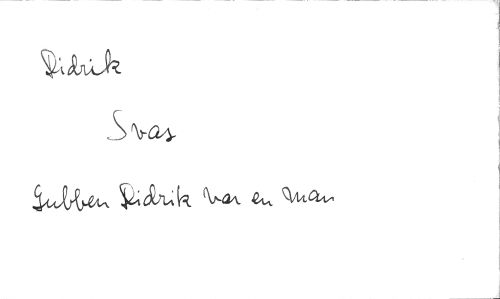 Didrik
Svas
Gubben Didrik var en man